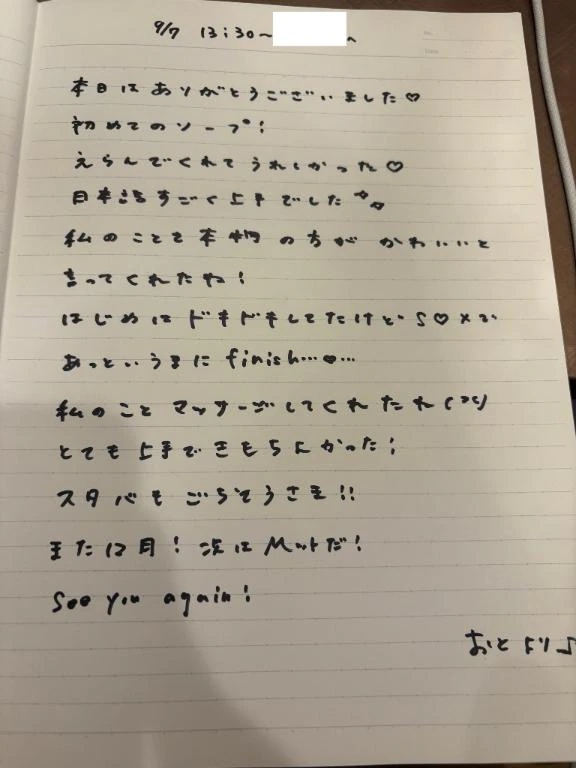 9/7 13:30~ へ
本日はありがとうございました♡
初めてのソープ!
えらんでくれてうれしかった♡
日本語すごく上手でした
私のことを本物の方がかわいいと
言ってくれたね!
はじめはドキドキしてたけど S♡xで
あっというまに finish…♥…
私のこと マッサージしてくれたね
とても上手できもちよかった!
スタバもごちそうさま!!
また12月!次はMットだ!
See you again!
おとより♪